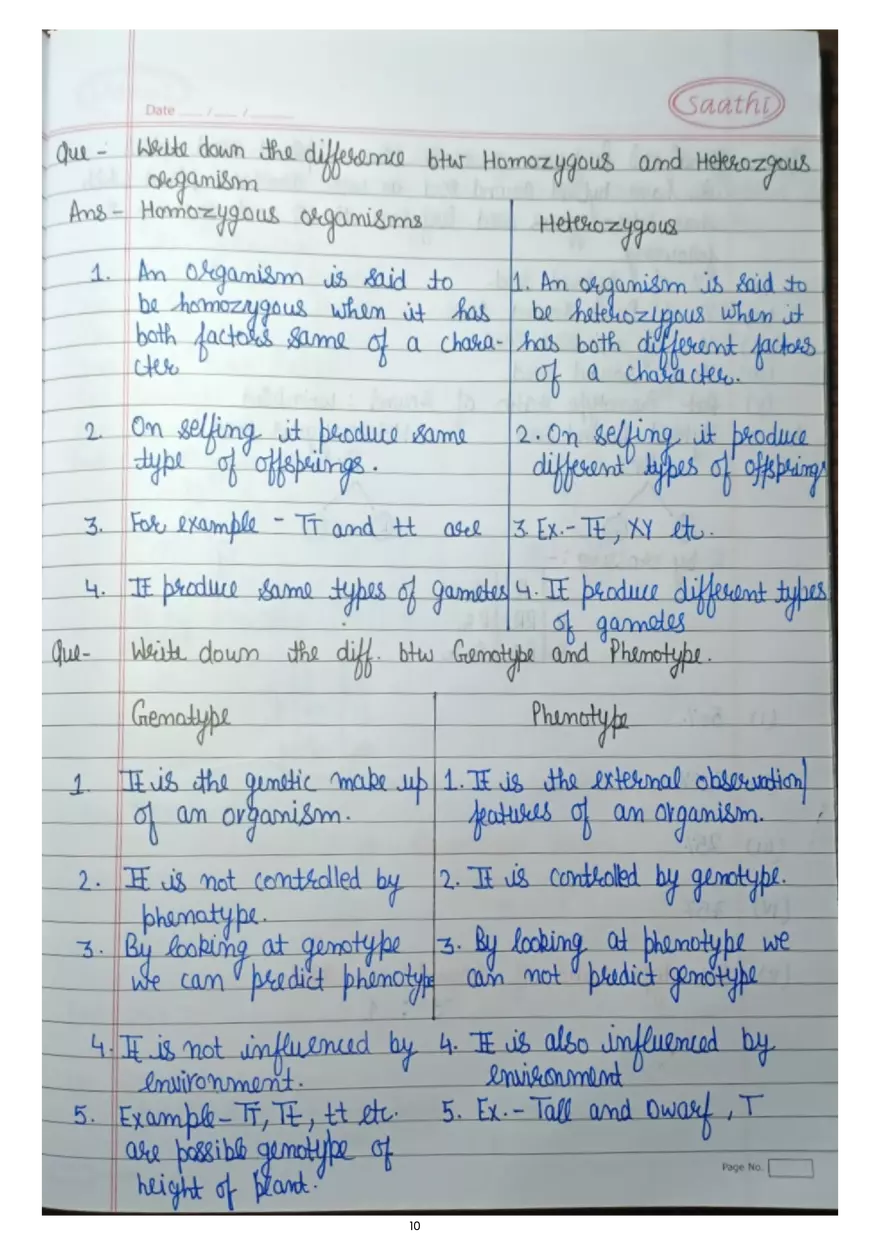 Date ___/___/_____
Saathi
Que - Write down the difference btw Homozygous and Heterozgous
organism
Ans - Homozygous organisms
Heterozygous
1. An organism is said to
be homozygous when it has
both factors same of a chara-
cter
1. An organism is said to
be heterozygous when it
has both different factors
of a character.
2. On selfing it produce same
type of offsprings.
2. On selfing it produce
different types of offsprings
3. For example - TT and tt are
3. Ex.- Tt, XY etc.
4. It produce same types of gametes
4. It produce different types
of gametes
Que- Write down the diff. btw Genotype and Phenotype.
Genotype
Phenotype
1. It is the genetic make up
of an organism.
1. It is the external observation
features of an organism.
2. It is not controlled by
phenotype.
2. It is controlled by genotype.
3. By looking at genotype
we can predict phenotype
3. By looking at phenotype we
can not predict genotype
4. It is not influenced by
environment.
4. It is also influenced by
environment
5. Example - TT, Tt, tt etc.
are possible genotype of
height of plant.
5. Ex. - Tall and Dwarf, T
Page No.
10